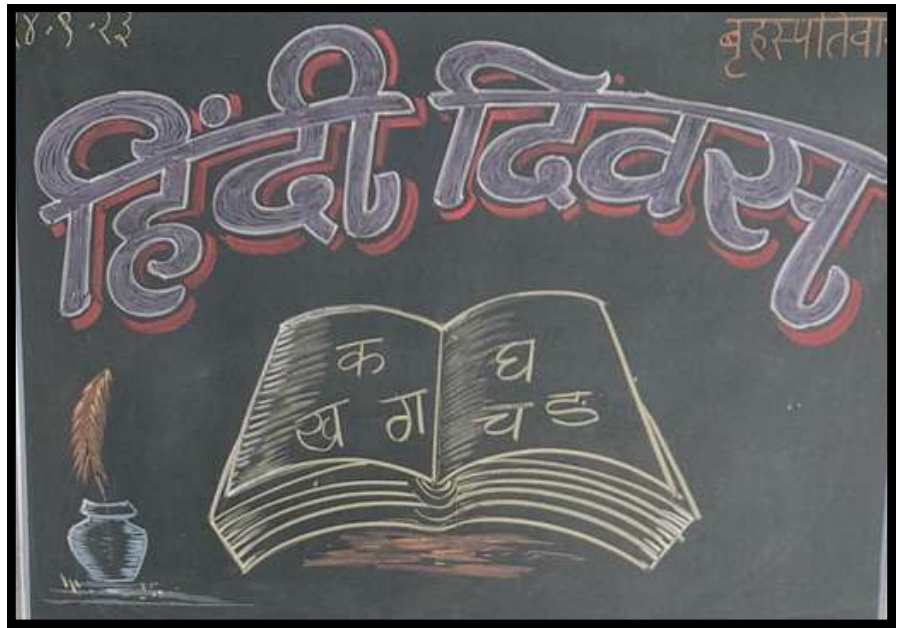 १४.९.२३
बृहस्पतिवा
हिंदी दिवस
क घ
ख ग च ङ